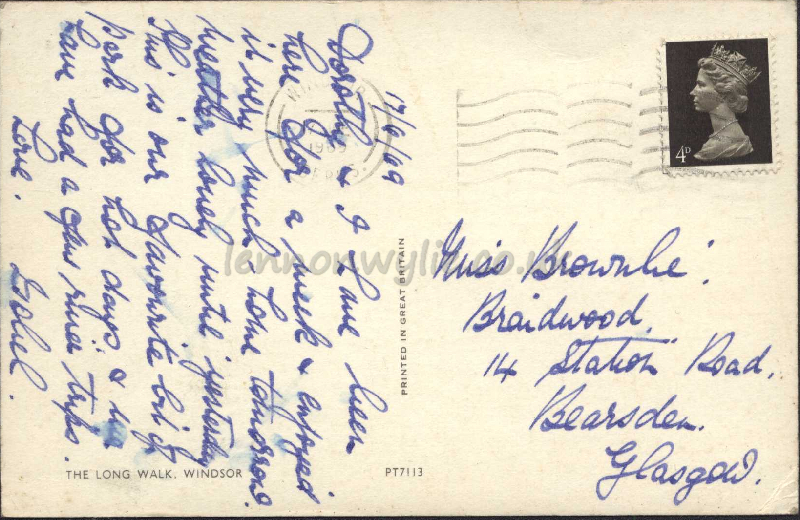 17/6/69
Dorothy & I have been
here for a week & enjoyed
it very much home tomorrow.
Weather lovely until yesterday
This is our favourite bit of
park for hot days. & we
have had a few river trips.
Love.
Isobel.
Miss Brownlie.
Braidwood,
14 Station Road,
Bearsden.
Glasgow.
4D
1969
BERKS.
PRINTED IN GREAT BRITAIN
THE LONG WALK, WINDSOR
PT7113
lennonwylie.co.uk